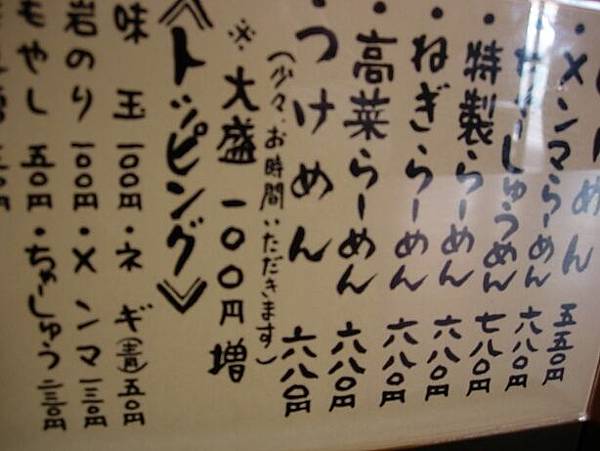 めん 五五〇円
・メンマらーめん 六八〇円
・ちゃーしゅうめん 七八〇円
・特製らーめん 六八〇円
・ねぎらーめん 六八〇円
・高菜らーめん 六八〇円
・つけめん 六八〇円
(少々、お時間いただきます)
※大盛 一〇〇円増
《トッピング》
味玉 一〇〇円・ネギ(青) 五〇円
岩のり 一〇〇円・メンマ 一三〇円
もやし 五〇円・ちゃーしゅう 二三〇円